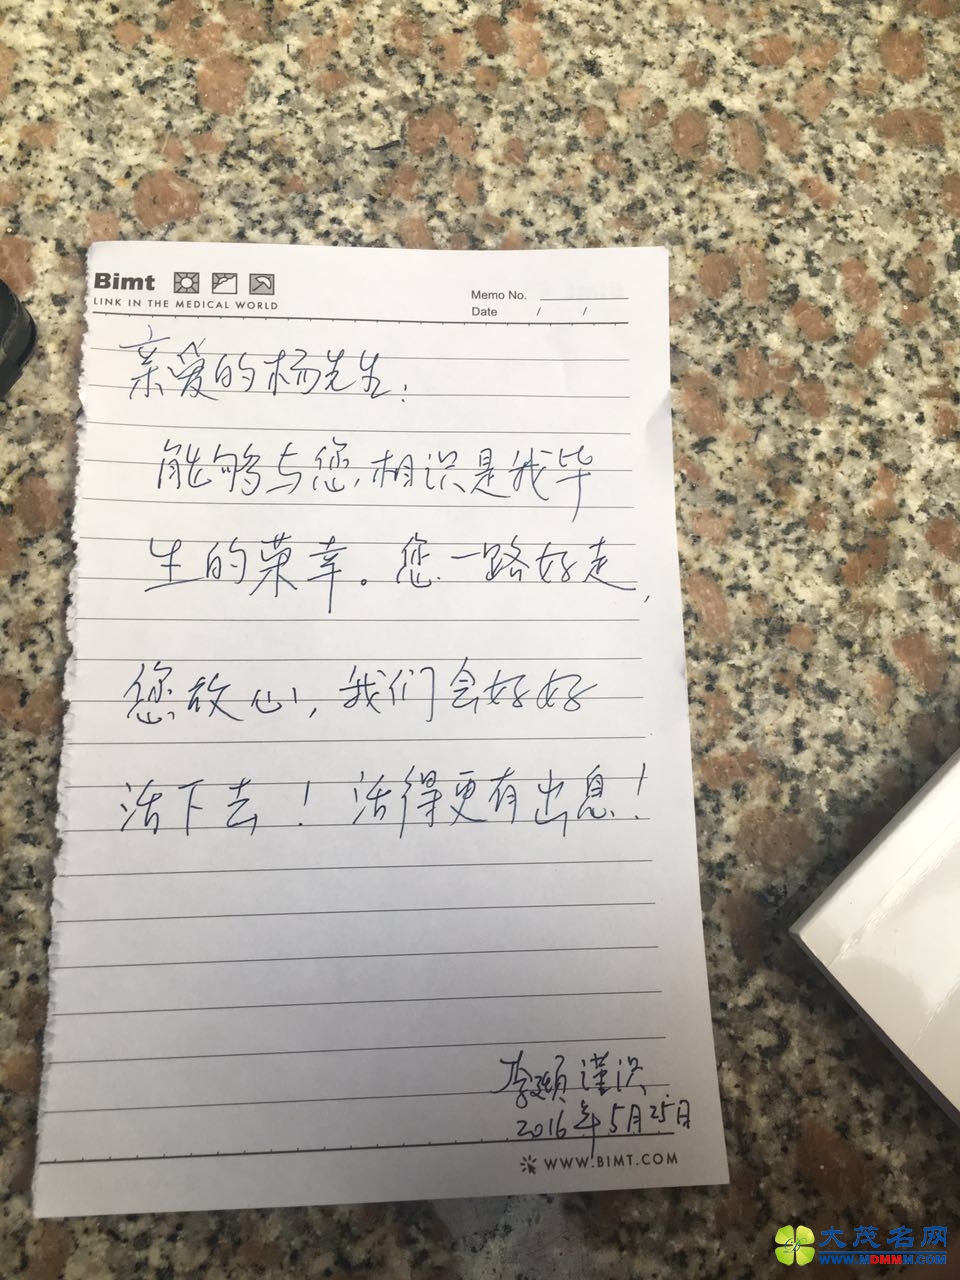 Bimt
LINK IN THE MEDICAL WORLD
Memo No.
Date / /
亲爱的杨先生:
能够与您相识是我毕
生的荣幸。您一路好走,
您放心,我们会好好
活下去!活得更有出息!
李颖谨识
2016年5月25日
WWW.BIMT.COM
大茂名网
MDMMM.COM